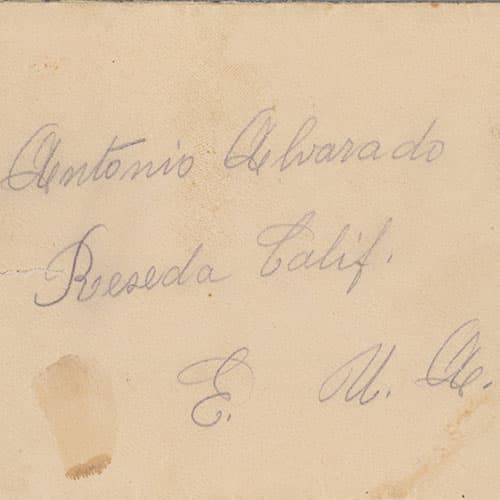 Antonio Alvarado
Reseda Calif.
E. U. A.